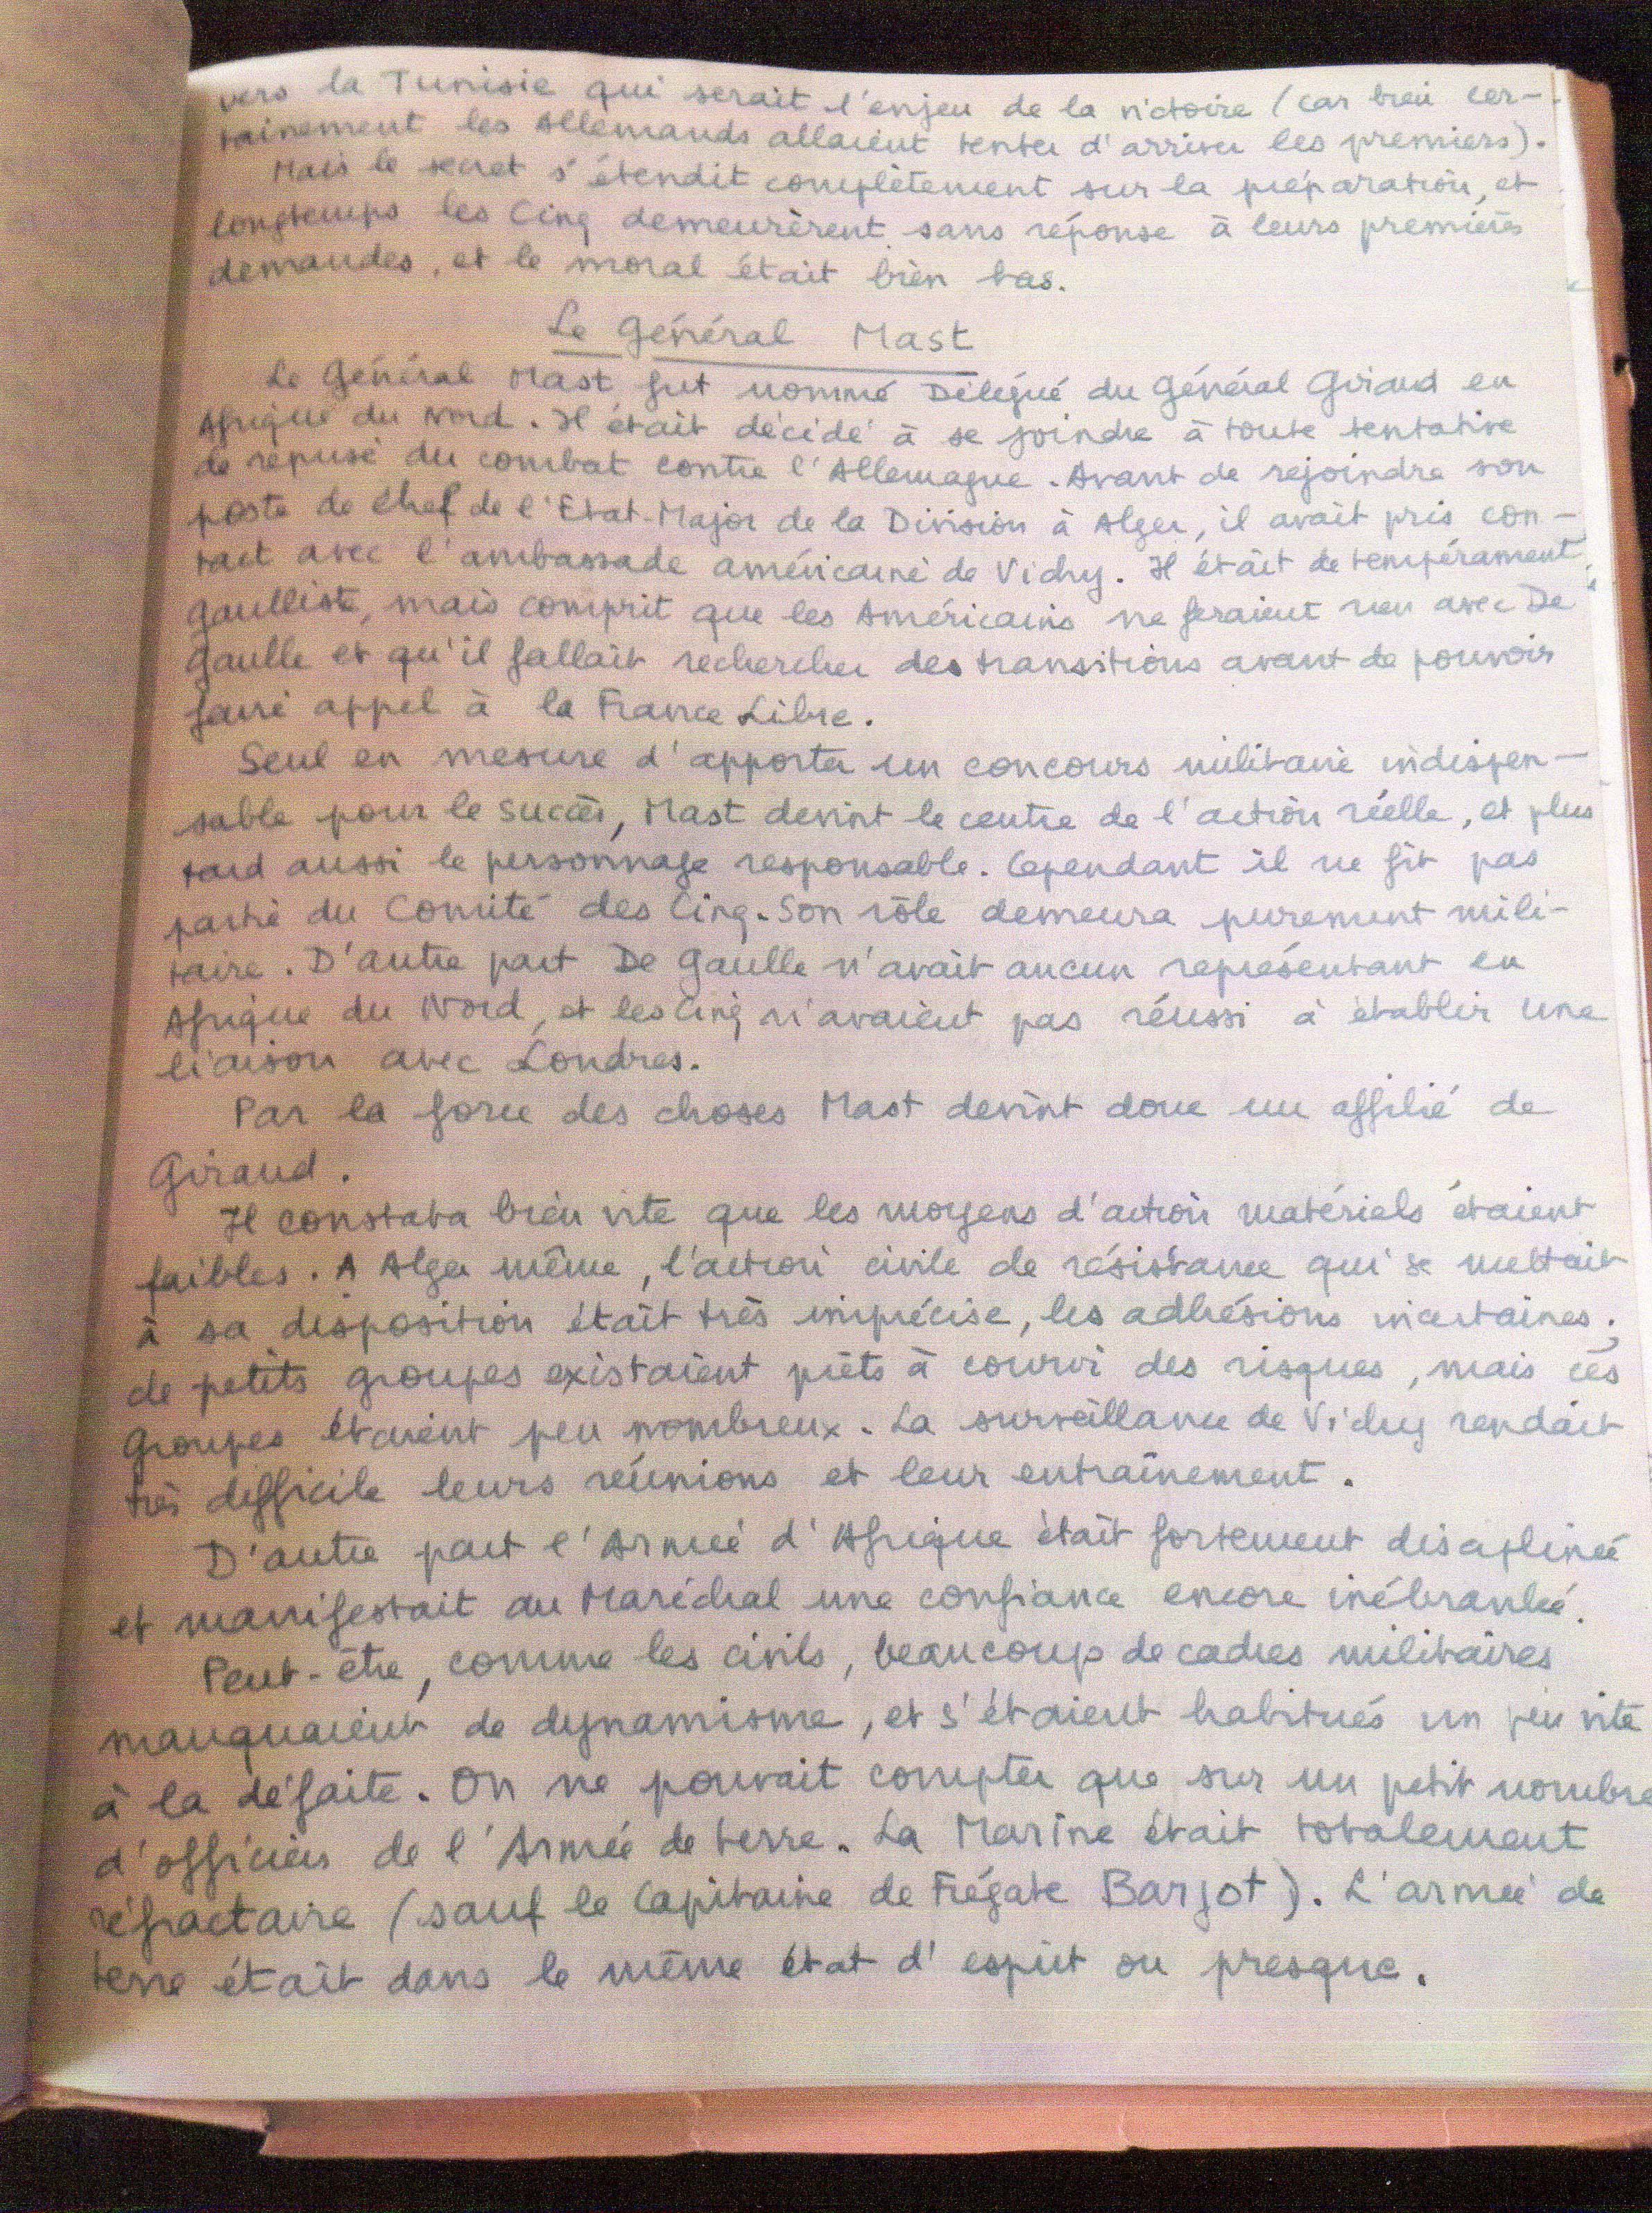 vers la Tunisie qui serait l'enjeu de la victoire (car bien cer-
tainement les Allemands allaient tenter d'arriver les premiers).
Mais le secret s'étendit complètement sur la préparation, et
longtemps les Cinq demeurèrent sans réponse à leurs premières
demandes, et le moral était bien bas.
Le Général Mast
Le Général Mast fut nommé Délégué du Général Giraud en
Afrique du Nord. Il était décidé à se joindre à toute tentative
de reprise du combat contre l'Allemagne. Avant de rejoindre son
poste de chef de l'Etat-Major de la Division à Alger, il avait pris con-
tact avec l'ambassade américaine de Vichy. Il était de tempérament
gaulliste, mais comprit que les Américains ne feraient rien avec De
Gaulle et qu'il fallait rechercher des transitions avant de pouvoir
faire appel à la France Libre.
Seul en mesure d'apporter un concours militaire indispen-
sable pour le succès, Mast devint le centre de l'action réelle, et plus
tard aussi le personnage responsable. Cependant il ne fit pas
partie du Comité des Cinq. Son rôle demeura purement mili-
taire. D'autre part De Gaulle n'avait aucun représentant en
Afrique du Nord, et les Cinq n'avaient pas réussi à établir une
liaison avec Londres.
Par la force des choses Mast devint donc un affilié de
Giraud.
Il constata bien vite que les moyens d'action matériels étaient
faibles. A Alger même, l'action civile de résistance qui se mettait
à sa disposition était très imprécise, les adhésions incertaines;
de petits groupes existaient prêts à courir des risques, mais ces
groupes étaient peu nombreux. La surveillance de Vichy rendait
très difficile leurs réunions et leur entraînement.
D'autre part l'Armée d'Afrique était fortement disciplinée
et manifestait au Maréchal une confiance encore inébranlée.
Peut-être, comme les civils, beaucoup de cadres militaires
manquaient de dynamisme, et s'étaient habitués un peu vite
à la défaite. On ne pouvait compter que sur un petit nombre
d'officiers de l'Armée de terre. La Marine était totalement
réfractaire (sauf le Capitaine de Frégate Barjot). L'armée de
terre était dans le même état d'esprit ou presque.